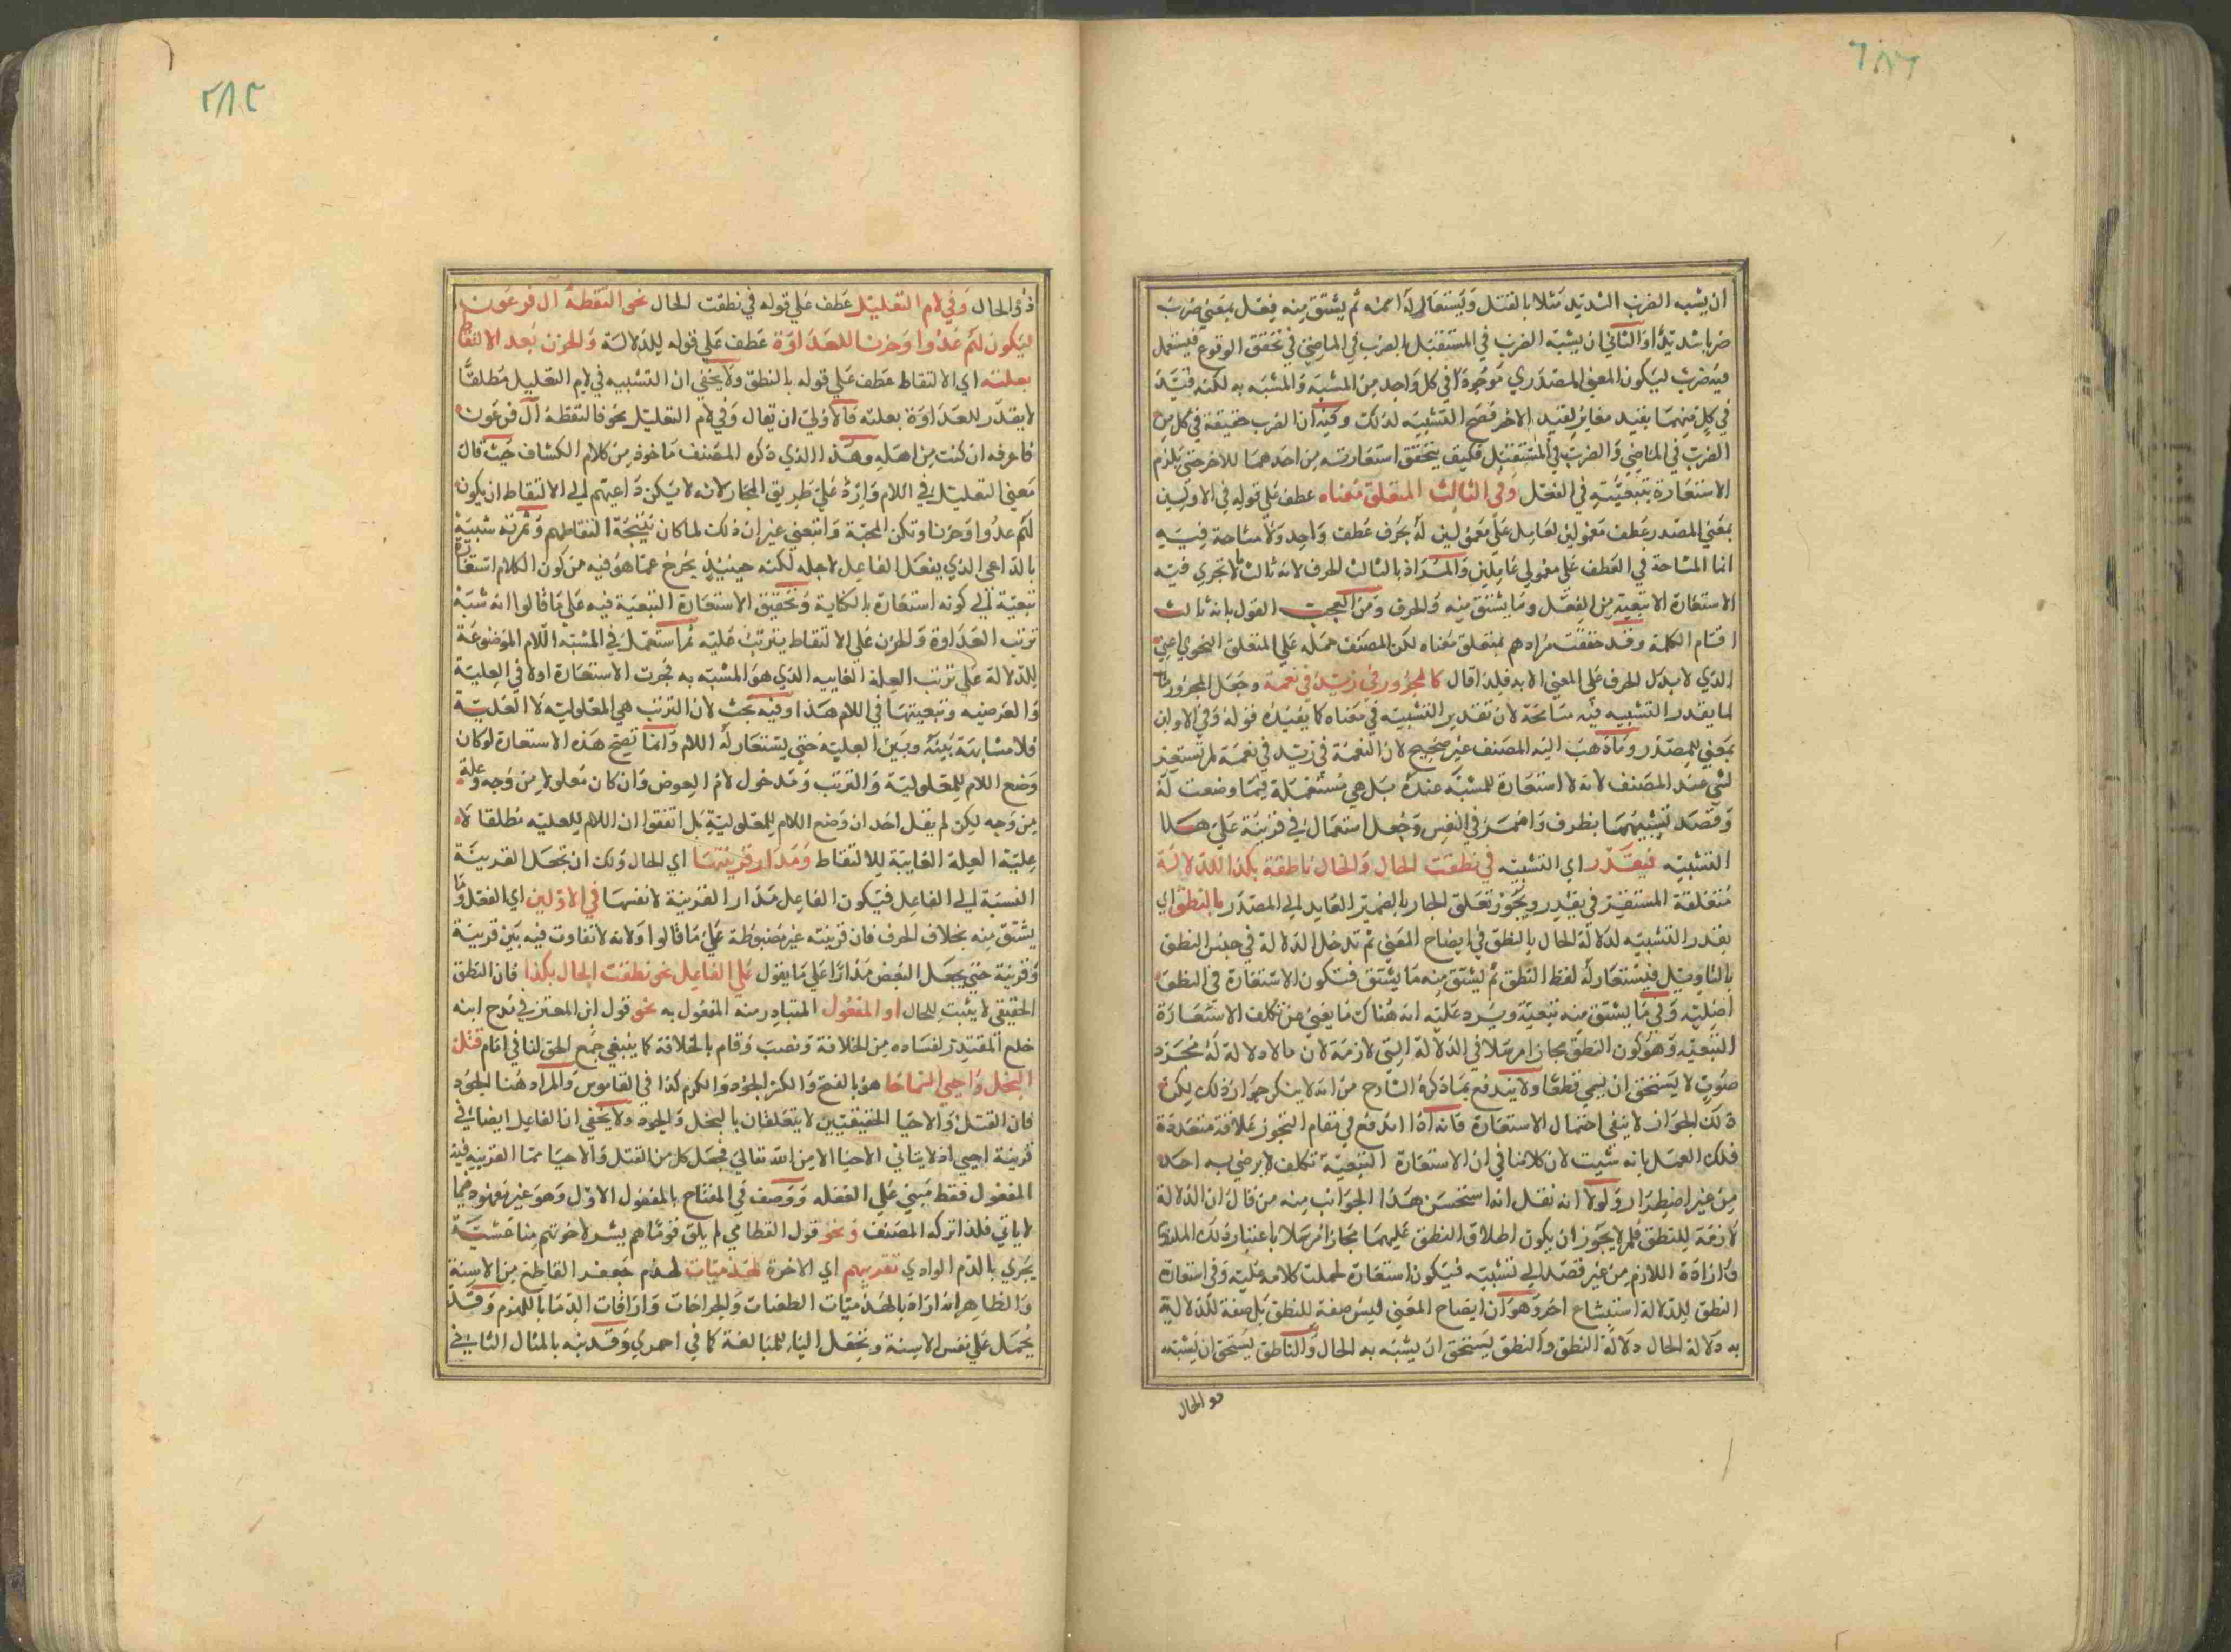 ان يشبه الضرب الشديد مثلا بالقتل ويستعار له اسمه ثم يشتق منه فعل بمعني ضرب
ضربا شديدا والثاني ان يشبه الضرب في المستقبل بالضرب في الماضي في تحقق الوقوع فيستعمل
فيه ضرب ليكون المعني المصدري موجودا في كل واحد من المشبه والمشبه به لكنه قيد
في كل منهما بقيد مغاير لقيد الاخر فصح التشبيه لذلك وفيه ان الضرب حقيقة في كل من
الضرب في الماضي والضرب في المستقبل فكيف يتحقق استعارته من احدهما للاخر حتي يلزم
الاستعارة بتبعيته في الفعل وفي الثالث المتعلق معناه عطف علي قوله في الاولين
بمعني المصدر بعطف معمولين لعامل علي معمولين له بحرف عطف واحد ولا مشاحة فيه
انما المشاحة في العطف علي معمولي عاملين والمراد بالثالث الحرف لانه ثالث ما تجري فيه
الاستعارة التبعية من الفعل وما يشتق منه والحرف ومن العجب القول بانه ثالث
اقسام الكلمة وقد حققت مرادهم بمتعلق معناه لكن المصنف حمله علي المتعلق النحوي اعني
الذي لا يدل الحرف علي المعني الا به فلذا قال كالمجرور في زيد في نعمة وجعل المجرور
لما يقدر التشبيه فيه مسامحة لان تقدير التشبيه في معناه كما يفيده قوله وفي الاولين
بمعني المصدر وما ذهب اليه المصنف غير صحيح لان النعمة في زيد في نعمة لم تستعر
لشي عند المصنف لانه لا استعارة للمشبه عنده بل هي مستعملة فيما وضعت له
وقصد تشبيهها بظرف واضمر في النفس وجعل استعمال في قرينة علي هذا
التشبيه فيقدر اي التشبيه في نطقت الحال والحال ناطقة بكذا للدلالة
متعلقة المستقر في يقدر ويجوز تعلق الجار بالضمير العايد الي المصدر بالنطق اي
يقدر التشبيه لدلالة الحال بالنطق في ايضاح المعني ثم تدخل الدلالة في جنس النطق
بالتاويل فيستعار له لفظ النطق ثم يشتق منه ما يشتق فتكون الاستعارة في النطق
اصلية وفي ما يشتق منه تبعية ويرد عليه انه هناك ما يغني عن تكلف الاستعارة
التبعية وهو كون النطق مجاز امرسلا في الدلالة التي لازمة لان ما لا دلالة له مجرد
صوت لا يستحق ان يسمي نطقا ولا يندفع بما ذكره الشارح من انه لا ينكر جواز ذلك لكن
ذلك الجواز لا ينفي احتمال الاستعارة فانه اذا اندفع في مقام التجوز علاقة متعددة
فلك العمل بانه شيت لان كلامنا في ان الاستعارة التبعية تكلف لا يرضي به احد
من غير اضطرار ولولا انه نقل انه استحسن هذا الجواب منه من قال ان الدلالة
لازمة للنطق فلم لا يجوز ان يكون اطلاق النطق عليها مجازا مرسلا باعتبار ذلك الملزوم
وارادة اللازم من غير قصد الي تشبيه فيكون استعارة لحملت كلامه عليه وفي استعارة
النطق للدلالة استبشاع اخر وهو ان ايضاح المعني ليس صفة للنطق بل صفة للدلالة
به دلالة الحال دلالة النطق والنطق يستحق ان يشبه به الحال والناطق يستحق ان يشبه
ذو الحال
٢٨٢
ذو الحال وفي لام التعليل عطف علي قوله في نطقت الحال نحو التقطه آل فرعون
ليكون لهم عدوا وحزنا للعداوة عطف علي قوله للدلالة والحزن بعد الالتقاط
بعلته اي الالتقاط عطف علي قوله بالنطق ولا يخفي ان التشبيه في لام التعليل مطلقا
لا يقدر للعداوة بعلته فالاولي ان يقال وفي لام التعليل نحو فالتقطه آل فرعون
فاعرفه ان كنت من اهله وهذا الذي ذكره المصنف ماخوذ من كلام الكشاف حيث قال
معني التعليل في اللام وارد علي طريق المجاز لانه لا يكن داعيتهم الي الالتقاط ان يكون
لهم عدوا وحزنا ولكن المحبة والتبني غير ان ذلك لما كان نتيجة التقاطهم وثمرته شبه
بالداعي الذي يفعل الفاعل لاجله لكنه حينيذ يخرج عما هو فيه من كون الكلام استعارة
تبعية الي كونه استعارة بالكناية وتحقيق الاستعارة التبعية فيه علي ما قالوا انه شبه
ترتب العداوة والحزن علي الالتقاط بترتب عليه ثم استعمل في المشبه اللام الموضوعة
للدلالة علي ترتب العلة الغاييه الذي هو المشبه به فجرت الاستعارة اولا في العلية
والغرضيه وتبعيتها في اللام هذا وفيه بحث لان الترتب هي المعلولية لا العلية
فلا مشابهة بينه وبين العلية حتي يستعار له اللام وانما تصح هذه الاستعارة لو كان
وضع اللام للمعلولية والترتب ومدخول لام العوض وان كان معلولا من وجه وعلة
من وجه لكن لم يقل احد ان وضع اللام للمعلولية بل اتفقوا ان اللام للعلية مطلقا لا
علية العلة الغايية للالتقاط ومدار قرينتها اي الحال ولك ان تجعل القرينة
النسبة الي الفاعل فيكون الفاعل مدار القرينة لا نفسها في الاولين اي الفعل وما
يشتق منه بخلاف الحرف فان قرينته غير مضبوطة علي ما قالوا ولانه لا تفاوت فيه بين قرينة
وقرينة حتي يجعل البعض مدارا علي ما يقول علي الفاعل نحو نطقت الحال بكذا فان النطق
الحقيقي لا يثبت للحال او المفعول المتبادر منه المفعول به نحو قول ابن المعتز في مدح ابنه
خلع المقتدر لفساده من الخلافة ونصب وقام بالخلافة كما ينبغي جمع الحق لنا في امام قتل
البخل واحيي السماحا هو بالفتح والكسر الجود والكرم كذا في القاموس والمراد هنا الجود
فان القتل والاحيا الحقيقيين لا يتعلقان بالبخل والجود ولا يخفي ان الفاعل ايضا في
قرينة احيي اذ لا يتاتي الاحيا الا من الله تعالي فجعل كل من القتل والاحيا مما القرينة فيه
المفعول فقط مبني علي الغفله ووصف في المفتاح بالمفعول الاول وهو غير معهود فيما
لا ياتي فلذا تركه المصنف ونحو قول القطامي لم يلق قوما هم بشر لاخوتهم منا عشية
يجري بالدم الوادي نقريهم اي الاخوة لهذميات لهذم كجعفر القاطع من الاسنة
والظاهر انه اراد بالهذميات الطعنات والجراحات وارافات الدما باللهزم وقد
يحمل علي نفس الاسنة ويجعل اليا للمبالغة كما في احمري وقد نبه بالمثال الثاني